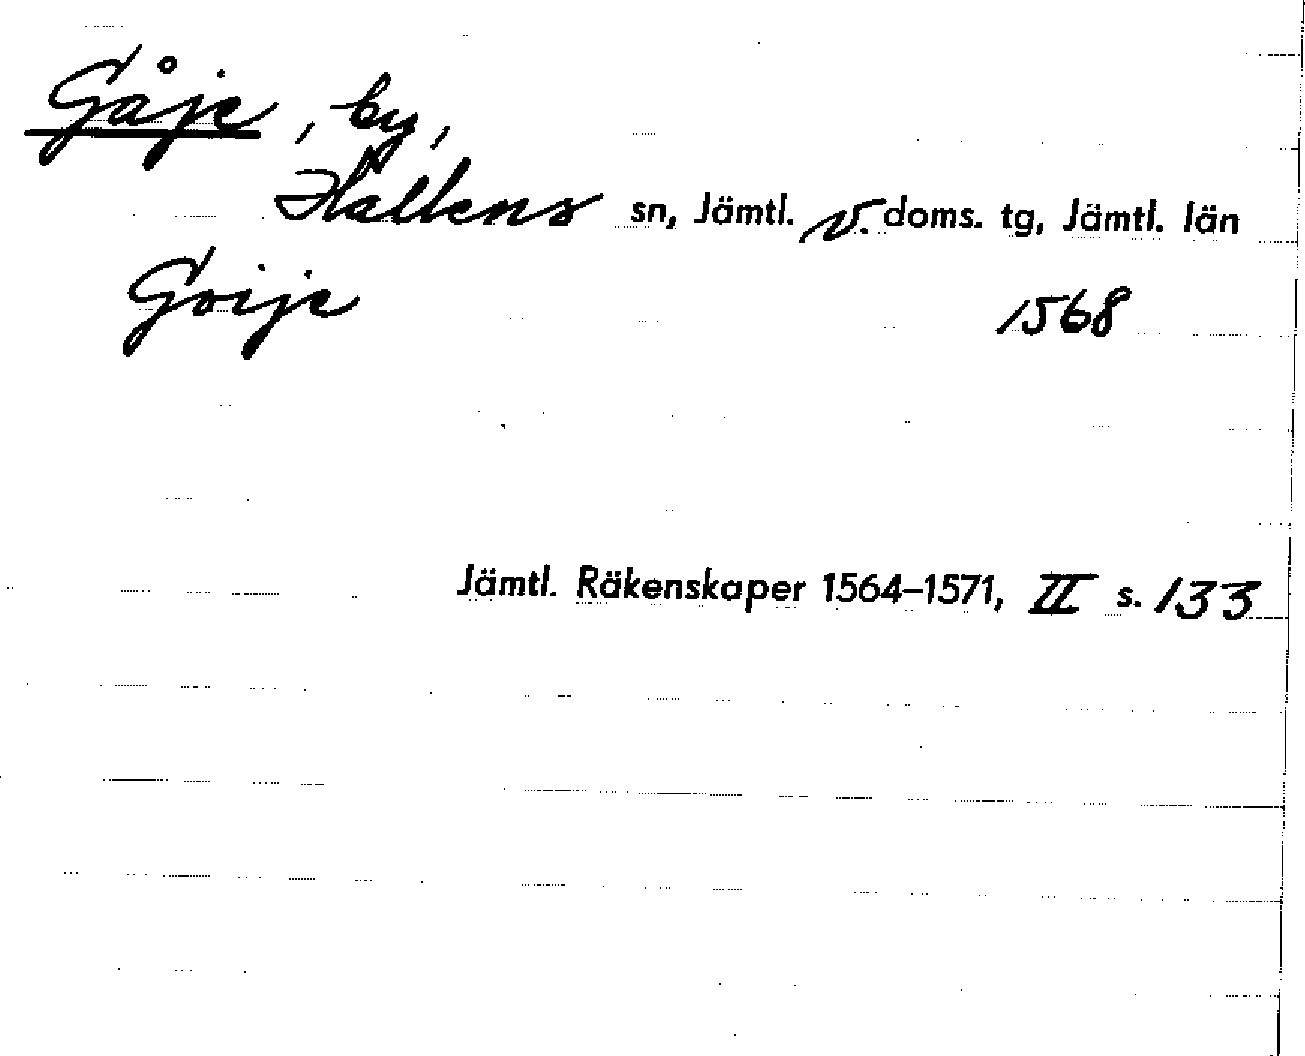 Gåje, by,
Hallens sn, Jämtl. v. doms. tg, Jämtl. län
Goije 1568
Jämtl. Räkenskaper 1564–1571, II s. 133